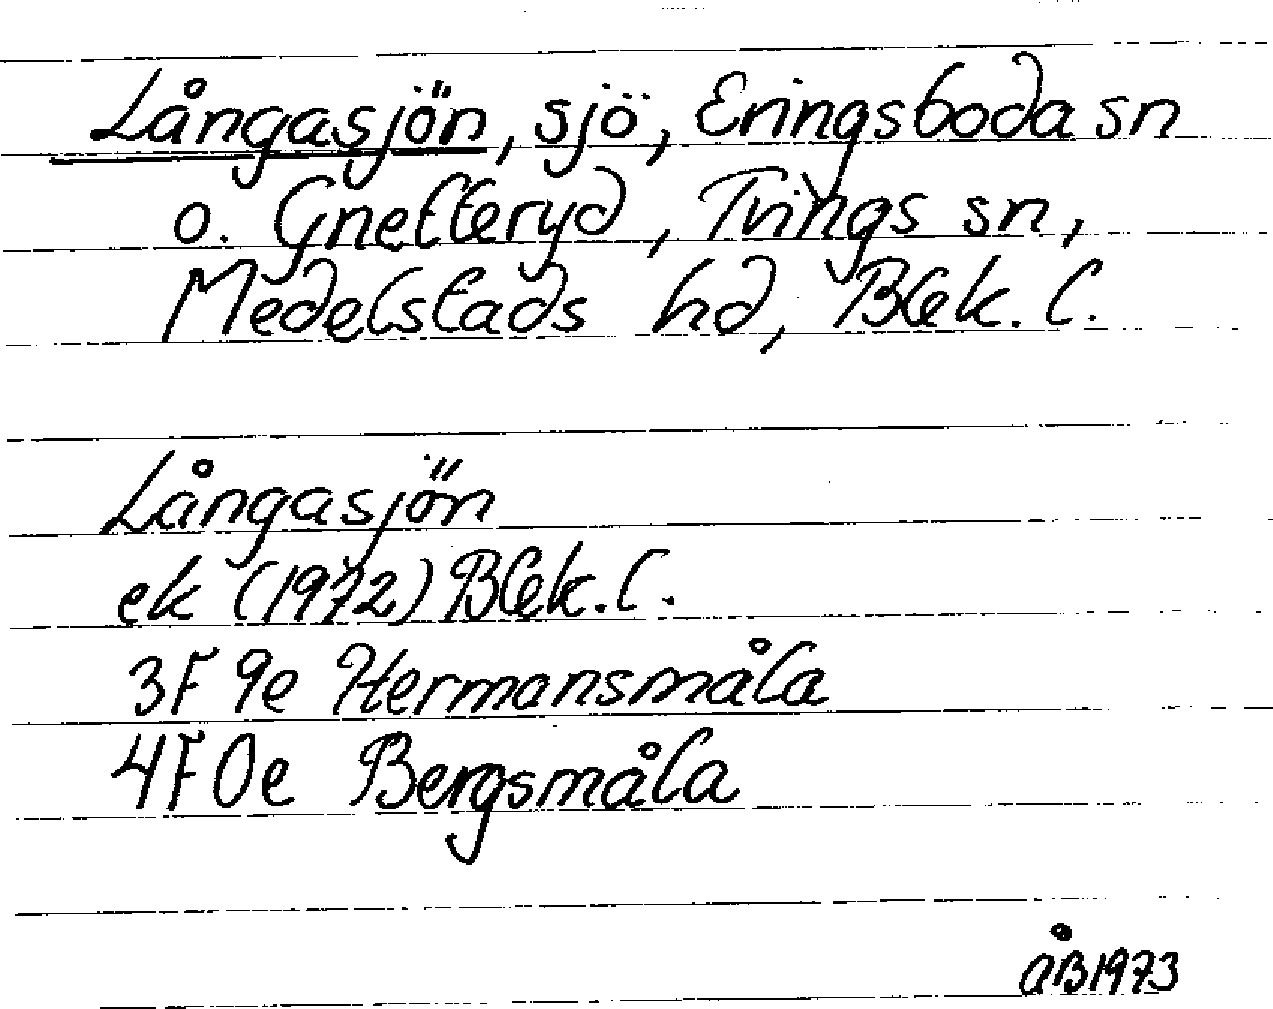 Långasjön, sjö, Eringsboda sn
o. Gnetteryd, Tvings sn,
Medelstads hd, Blek. l.
Långasjön
ek (1972) Blek. l.
3F 9e Hermansmåla
4F 0e Bergsmåla
ÅB 1973